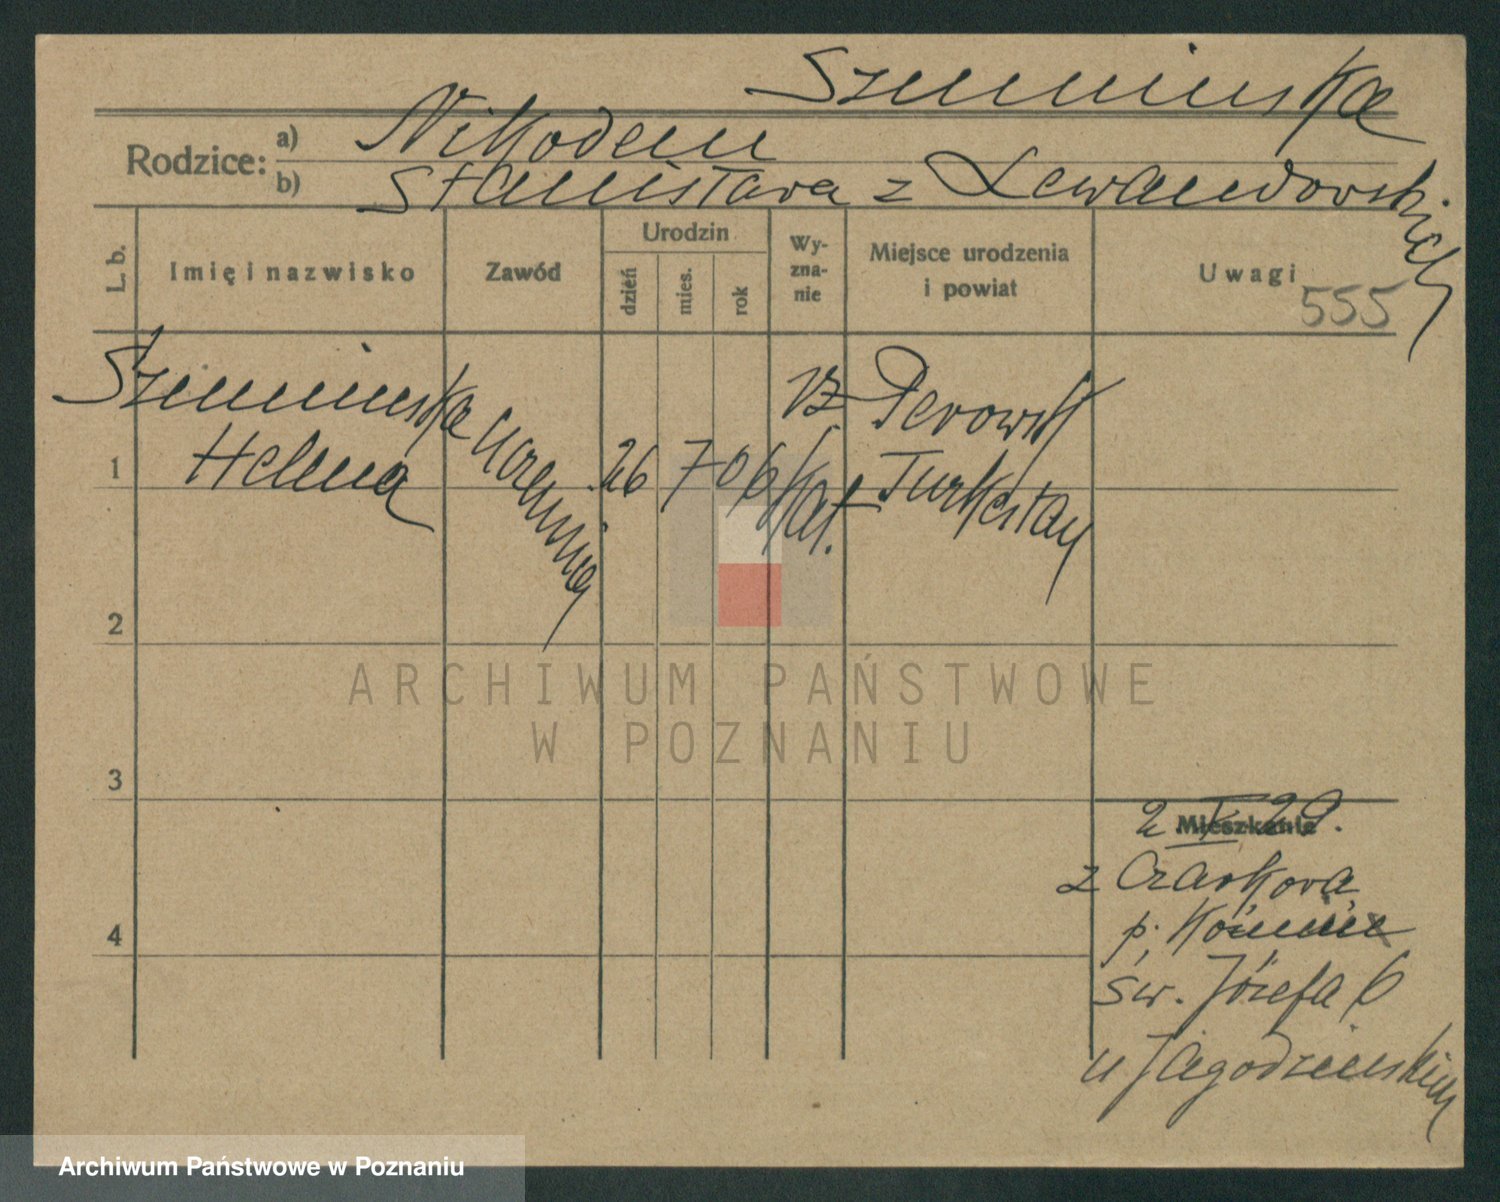 Szeminska
Rodzice: a) Nikodem
b) Stanisława z Lewandowskich
L. b.
Imię i nazwisko
Zawód
Urodzin
dzień
mies.
rok
Wy-
zna-
nie
Miejsce urodzenia
i powiat
Uwagi
555
1
Helena
26 7 06
kat.
Perowsk
Turkestan
2
3
4
Mieszkanie
z Czarkowa
p.
św. Józefa 6
u Jagodzińskiej
ARCHIWUM PAŃSTWOWE
W POZNANIU
Archiwum Państwowe w Poznaniu